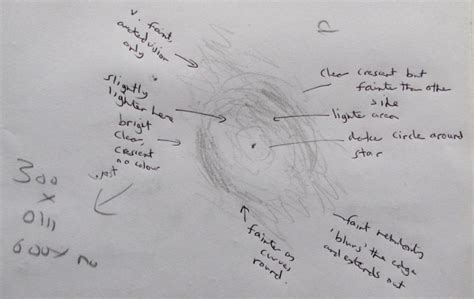 v. faint,
averted vision
only
slightly
lighter here
bright
clear,
crescent
no colour
clear crescent but
fainter than other
side
lighter area
darker circle around
star
faint nebulosity
'blurs' the edge
and extends out
fainter as
curves
round.
300
x
0111